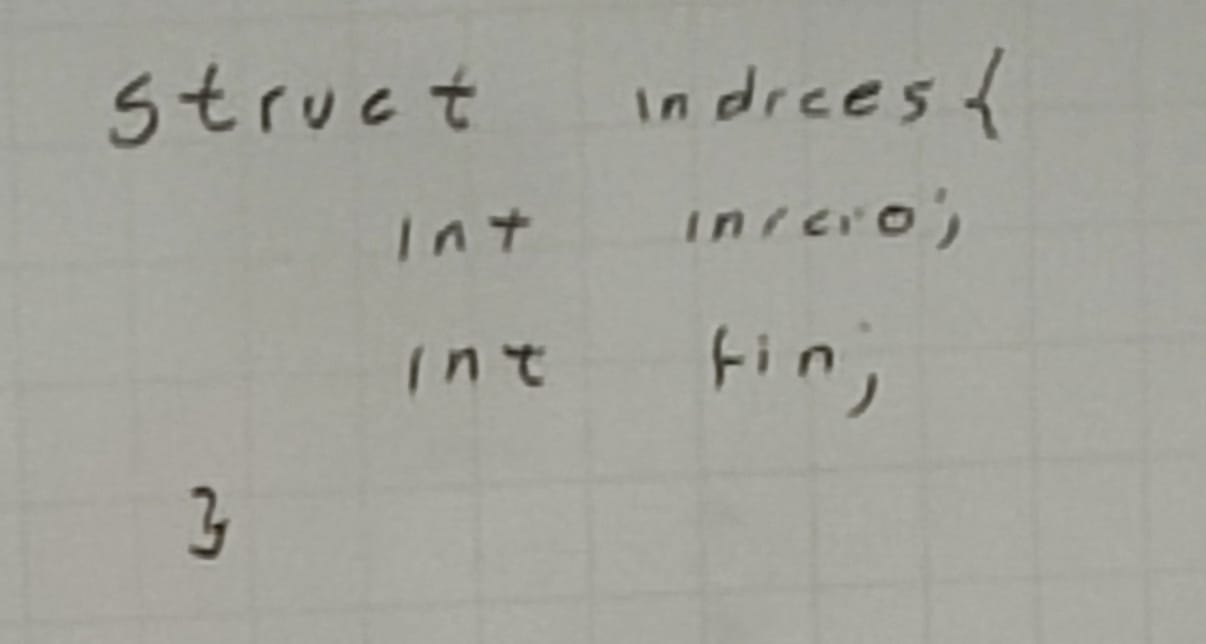 struct indices{
int inicio;
int fin;
}